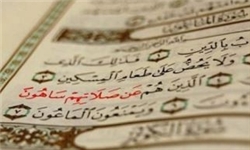 بُ بِالدِّينِ ۝ فَذَٰلِكَ الَّذِي
وَلَا يَحُضُّ عَلَىٰ طَعَامِ الْمِسْكِينِ ۝
الَّذِينَ هُمْ عَن صَلَاتِهِمْ سَاهُونَ
وَيَمْنَعُونَ الْمَاعُونَ ۝
سُورَةُ الْكَوْثَرِ